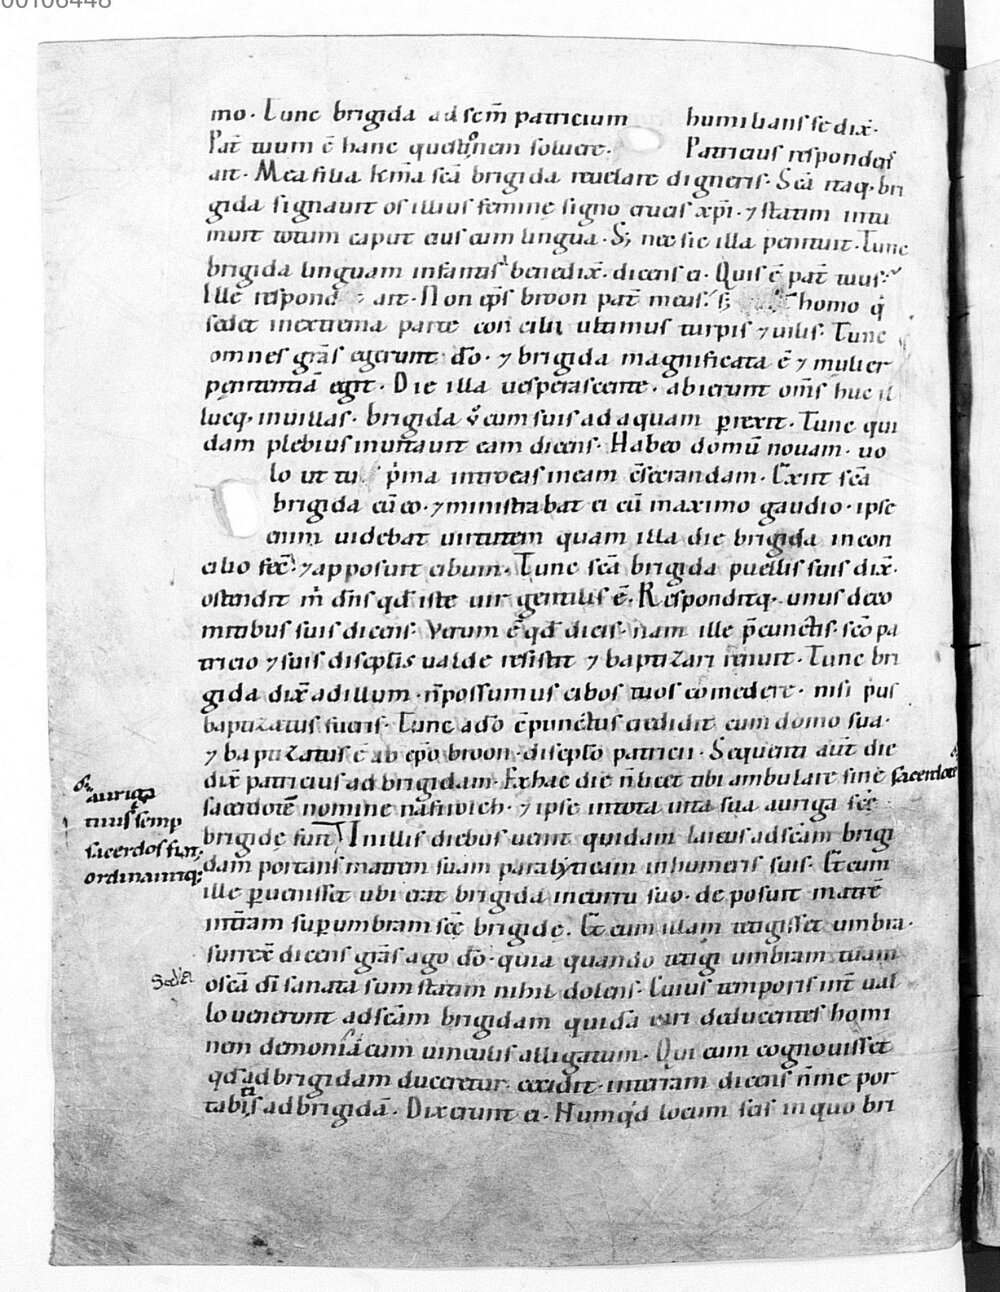 00106448
mo. Tunc brigida ad scm̄ patricium humilians se dix̄.
Pat̄ tuum ē hanc questionem soluere. Patricius respondens
ait. Mea filia km̄a scā brigida reuelare digneris. Scā itaq; bri
gida signauit os illius feminę signo crucis xp̄i. ⁊ statim intu
muit totum caput eius cum lingua. S; nec sic illa penituit. Tunc
brigida linguam infantis benedix̄. dicens ei. Quis ē pat̄ tuus.
Ille respond ait. Non ep̄s broon pat̄ meus. s; homo q̇
sedet in extrema parte concilii ultimus turpis ⁊ uilis. Tunc
omnes grās egerunt dō. ⁊ brigida magnificata ē ⁊ mulier
penitentiā egit. Die illa uesperascente. abierunt om̄s huc il
lucq; in uillas. brigida v̊ cum suis ad aquam perrexit. Tunc qui
dam plebius inuitauit eam dicens. Habeo domū nouam. uo
lo ut tu p̄ma introeas in eam c̄secrandam. Exiit scā
brigida cū eo. ⁊ ministrabat ei cū maximo gaudio. ipse
enim uidebat uirtutem quam illa die brigida in con
cilio fec̄. ⁊ apposuit cibum. Tunc scā brigida puellis suis dix̄.
ostendit m̄ dn̄s qđ iste uir gentilis ē. Responditq; unus de co
mitibus suis dicens. Verum ē qđ dicis. nam ille p̄ cunctis. scō pa
tricio ⁊ suis discip̄lis ualde resistit ⁊ baptizari renuit. Tunc bri
gida dix̄ ad illum. n̄ possumus cibos tuos comedere. nisi p̄us
baptizatus fueris. Tunc a dō c̄punctus credidit cum domo sua.
⁊ baptizatus ē ab ep̄o broon. discip̄lo patricii. Sequenti aūt die
dix̄ patricius ad brigidam. Ex hac die n̄ licet tibi ambulare sine sacerdote
sacerdotē nomine natfroich. ⁊ ipse in tota uita sua auriga scę̄
auriga
tuus semp
sacerdos fiat.
ordinauitq;
brigidę fuit. In illis diebus uenit quidam laicus ad scām brigi
dam portans matrem suam paralyticam in humeris suis. Et cum
ille peruenisset ubi erat brigida in curru suo. deposuit matrē
in t̄ram super umbram scę̄ brigidę. Et cum illam tetigisset umbra.
surrex̄ dicens grās ago dō. quia quando tetigi umbram tuam
o scā dī sanata sum statim nihil dolens. Cuius temporis int̄ual
lo uenerunt ad scām brigidam quidā uiri deducentes homi
nem demoniacum uinculis alligatum. Qui cum cognouisset
qđ ad brigidam duceretur. cecidit in terram dicens n̄ me por
tabitis ad brigidā. Dixerunt ei. Numq̇d locum scis in quo bri